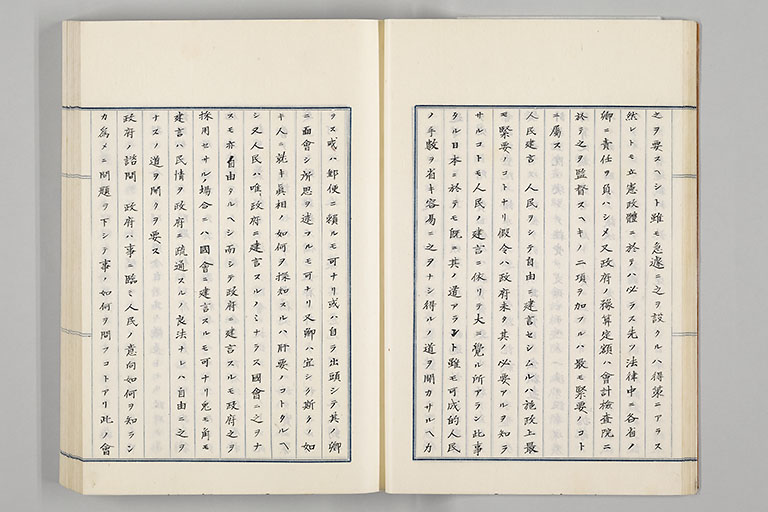 之ヲ要スヘシト雖モ急遽ニ之ヲ設クルハ得策ニアラス
然レトモ立憲政體ニ於テハ必ラス先ツ法律中ニ各省ノ
卿ニ責任ヲ負ハシメ又政府ノ豫算定額ハ會計檢査院ニ
於テ之ヲ監督スヘキノ二項ヲ加フルハ最モ緊要ノコト
ニ屬ス
人民建言 人民ヲシテ自由ニ建言セシムルハ施政上最
モ緊要ノコトナリ假令ハ政府未タ其ノ必要アルヲ知ラ
サルコトモ人民ノ建言ニ依リテ大ニ覺ル所アラン此事
タル日本ニ於テモ既ニ其ノ道アラント雖モ可成的人民
ノ手數ヲ省キ容易ニ之ヲナシ得ルノ道ヲ開カサルヘカ
ラス或ハ郵便ニ頼ルモ可ナリ或ハ自ラ出頭シテ其ノ卿
ニ面會シ所思ヲ述フルモ可ナリ又卿ハ宜シク斯クノ如
キ人ニ就キ眞相ノ如何ヲ探知スルハ肝要ノコトタルヘ
シ又人民ハ唯政府ニ建言スルノミナラス國會ニ之ヲナ
スモ亦自由タルヘシ而シテ政府ニ建言スルモ政府之ヲ
採用セサルノ場合ニハ國會ニ建言スルモ可ナリ兎モ角モ
建言ハ民情ヲ政府ニ疏通スルノ良法ナレハ自由ニ之ヲ
ナスノ道ヲ開クヲ要ス
政府ノ諮問 政府ハ事ニ臨ミ人民ノ意向如何ヲ知ラン
カ爲メニ問題ヲ下シテ事ノ如何ヲ問フコトアリ此ノ會